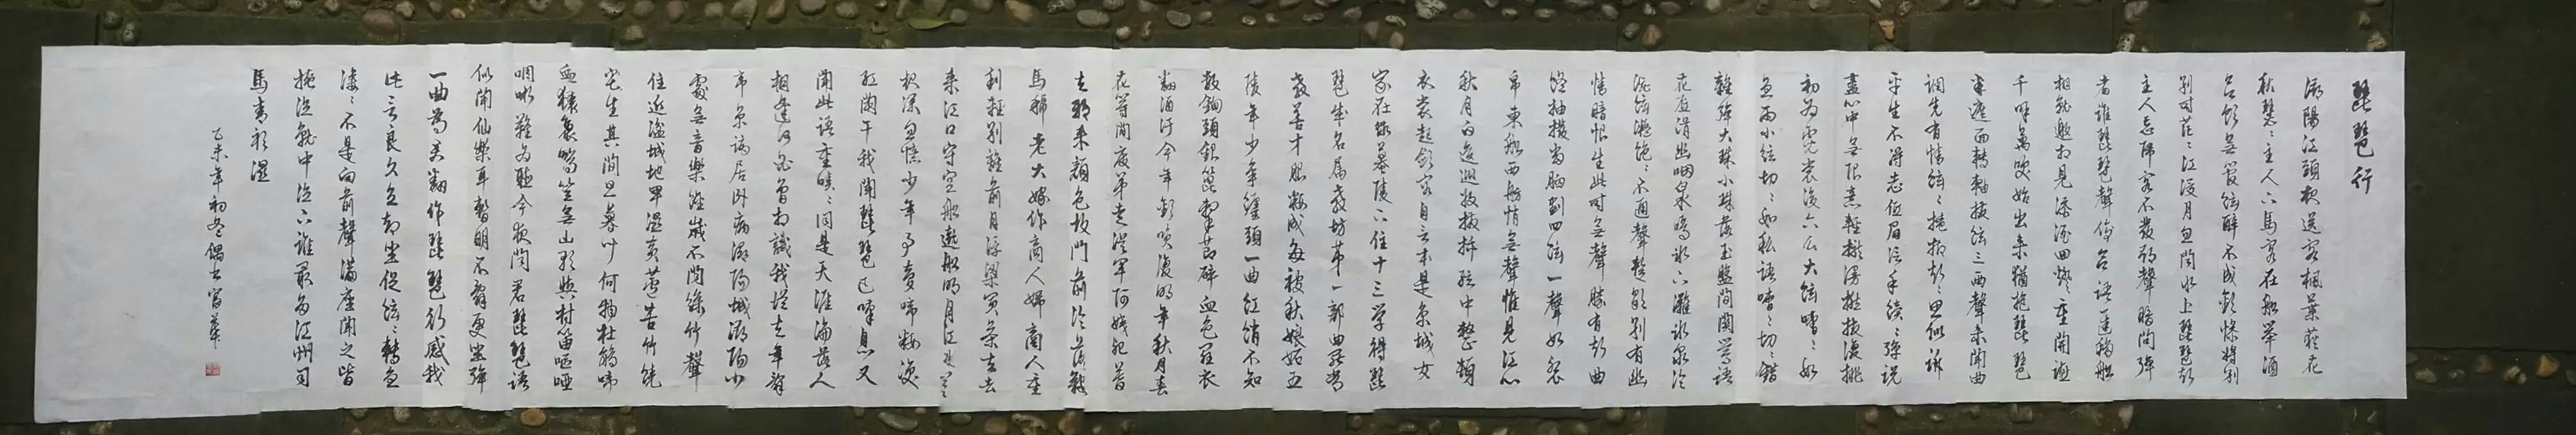 琵琶行
潯陽江頭夜送客楓葉荻花
秋瑟〻主人下馬客在船舉酒
欲飲無管絃醉不成歡慘將別
別時茫〻江浸月忽聞水上琵琶聲
主人忘歸客不發尋聲暗問彈
者誰琵琶聲停欲語遲移船
相就邀相見添酒回燈重開宴
千呼萬喚始出來猶抱琵琶
半遮面轉軸撥絃三兩聲未聞曲
調先有情絃〻掩抑聲〻思似訴
平生不得志低眉信手續〻彈說
盡心中無限意輕攏慢撚撥復挑
初為霓裳後六幺大絃嘈〻如
急雨小絃切〻如私語嘈〻切〻錯
雜彈大珠小珠落玉盤間關鶯語
花底滑幽咽泉流冰下灘冰泉冷
澀絃凝絕〻不通聲暫歇別有幽
情暗恨生此時無聲勝有聲曲
終抽撥當胸劃四絃一聲如裂
帛東船西舫悄無聲惟見江心
秋月白沉吟放撥插絃中整頓
衣裳起斂容自言本是京城女
家在蝦蟇陵下住十三學得琵
琶成名屬教坊第一部曲罷常
教善才服妝成每被秋娘妒五
陵年少爭纏頭一曲紅綃不知
數鈿頭銀篦擊節碎血色羅裙
翻酒污今年歡笑復明年秋月春
花等閒度弟走從軍阿姨死暮
去朝來顏色故門前冷落鞍
馬稀老大嫁作商人婦商人重
利輕別離前月浮梁買茶去去
來江口守空船遶船明月江水寒
夜深忽憶少年事夢啼妝淚
紅闌干我聞琵琶已嘆息又
聞此語重唧〻同是天涯淪落人
相逢何必曾相識我從去年辭
帝京謫居卧病潯陽城潯陽小
處無音樂終歲不聞絲竹聲
住近湓城地卑濕黃蘆苦竹繞
宅生其間旦暮聞何物杜鵑啼
血猿哀鳴豈無山歌與村笛嘔啞
嘲哳難為聽今夜聞君琵琶語
似聞仙樂耳暫明不辭更坐彈
一曲為君翻作琵琶行感我
此言良久立卻坐促絃〻轉急
淒〻不是向前聲滿座聞之皆
掩泣就中泣下誰最多江州司
馬青衫濕
乙未年初冬偶書